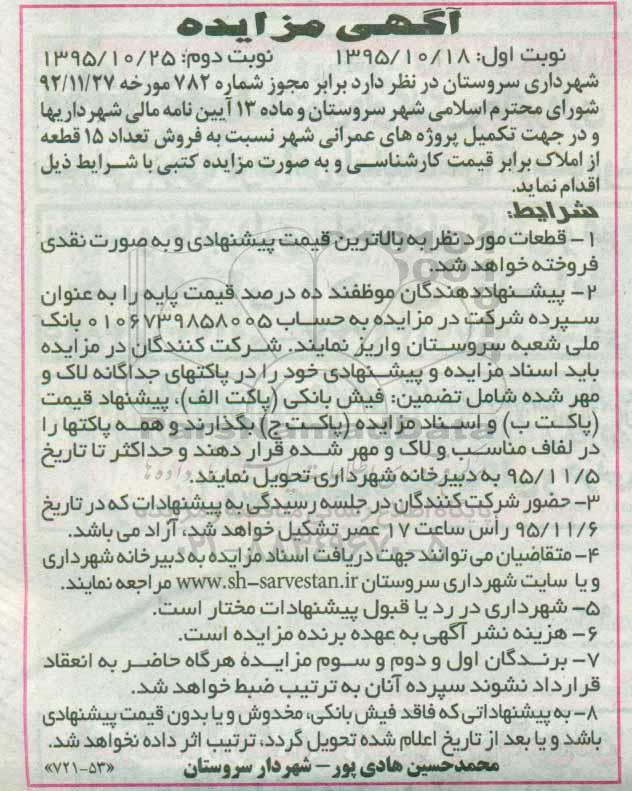 آگهی مزایده
نوبت اول: ۱۳۹۵/۱۰/۱۸ نوبت دوم: ۱۳۹۵/۱۰/۲۵
شهرداری سروستان در نظر دارد برابر مجوز شماره ۷۸۲ مورخه ۹۲/۱۱/۲۷
شورای محترم اسلامی شهر سروستان و ماده ۱۳ آیین نامه مالی شهرداریها
و در جهت تکمیل پروژه های عمرانی شهر نسبت به فروش تعداد ۱۵ قطعه
از املاک برابر قیمت کارشناسی و به صورت مزایده کتبی با شرایط ذیل
اقدام نماید.
شرایط:
۱- قطعات مورد نظر به بالاترین قیمت پیشنهادی و به صورت نقدی
فروخته خواهد شد.
۲- پیشنهاددهندگان موظفند ده درصد قیمت پایه را به عنوان
سپرده شرکت در مزایده به حساب ۰۱۰۶۷۳۹۸۵۸۰۰۵ بانک
ملی شعبه سروستان واریز نمایند. شرکت کنندگان در مزایده
باید اسناد مزایده و پیشنهادی خود را در پاکتهای جداگانه لاک و
مهر شده شامل تضمین: فیش بانکی (پاکت الف)، پیشنهاد قیمت
(پاکت ب) و اسناد مزایده (پاکت ج) بگذارند و همه پاکتها را
در لفاف مناسب و لاک و مهر شده قرار دهند و حداکثر تا تاریخ
۹۵/۱۱/۵ به دبیرخانه شهرداری تحویل نمایند.
۳- حضور شرکت کنندگان در جلسه رسیدگی به پیشنهادات که در تاریخ
۹۵/۱۱/۶ رأس ساعت ۱۷ عصر تشکیل خواهد شد، آزاد می باشد.
۴- متقاضیان می توانند جهت دریافت اسناد مزایده به دبیرخانه شهرداری
و یا سایت شهرداری سروستان www.sh-sarvestan.ir مراجعه نمایند.
۵- شهرداری در رد یا قبول پیشنهادات مختار است.
۶- هزینه نشر آگهی به عهده برنده مزایده است.
۷- برندگان اول و دوم و سوم مزایدهٔ هرگاه حاضر به انعقاد
قرارداد نشوند سپرده آنان به ترتیب ضبط خواهد شد.
۸- به پیشنهاداتی که فاقد فیش بانکی، مخدوش و یا بدون قیمت پیشنهادی
باشد و یا بعد از تاریخ اعلام شده تحویل گردد، ترتیب اثر داده نخواهد شد.
محمدحسین هادی پور - شهردار سروستان
«۷۲۱-۵۳»